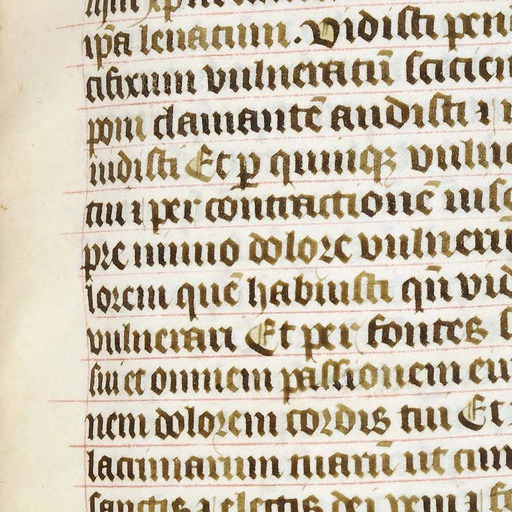 ip̄a leuatum. Vidisti pen
cifixum vulneratū sicien
poni clamantē audisti ⁊
uidisti Et ꝑ quinqꝫ vulne
tui ⁊ per contractionē uisc
pre nimio dolore vulnerū
lorem quē habuisti qn̄ vid
vulnerari Et per fontes
sui et omnem passionem eu
nem dolorem cordis tui Et
lacrimarum tuarū ut cum
sanctis ⁊ electis dei